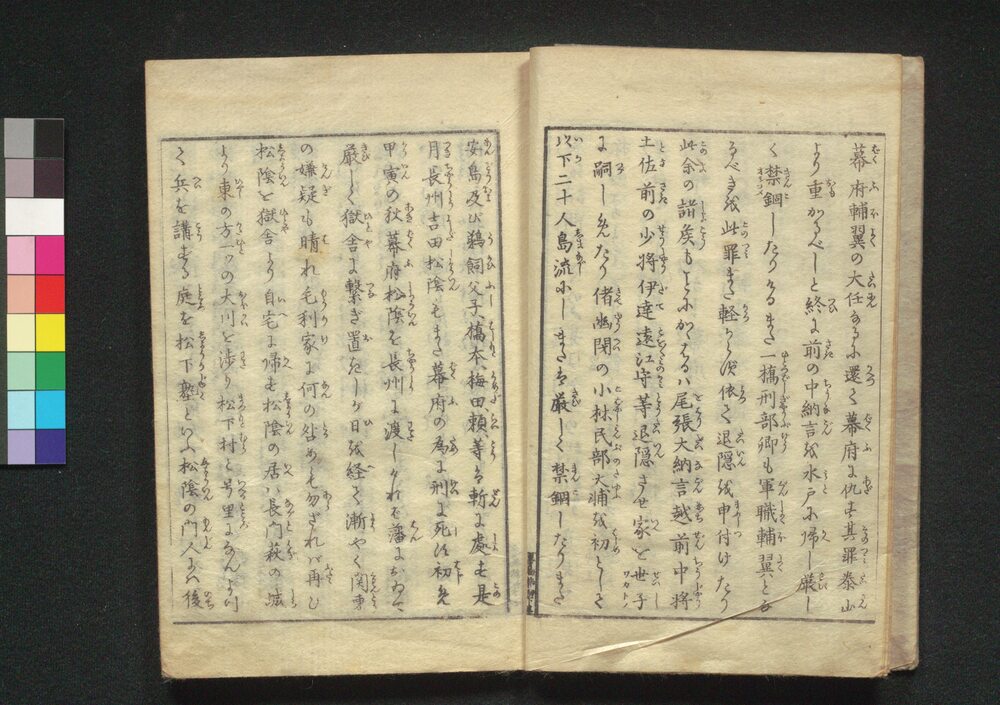 幕府輔翼の大任なるに還て幕府に仇す其罪泰山
より重かるべしと終に前の中納言を水戸に帰し厳し
く禁錮したりけるまた一橋刑部卿も軍職輔翼とな
るべきを此罪また軽からず依て退隠を申付けたり
此余の諸矦もとがかゝるハ尾張大納言越前中将
土佐前の少将伊達遠江守等退隠させ家を世子
に嗣しめたり偖幽閉の小林民部大浦を初として
以下二十人島流にしまたは厳しく禁錮したりまた
安島及び鵜飼父子橋本梅田頼等を斬に處す是
月長州吉田松陰もまた幕府の為に刑に死せ初め
甲寅の秋幕府松陰を長州に渡しけれバ藩において
厳しく獄舎に繋ぎ置たしが日を経て漸やく関東
の嫌疑も晴れ毛利家に何の咎めも勿ざれバ再び
松陰を獄舎より自宅に帰す松陰の居ハ長門萩の城
より東の方一ツの大川を渉り松下村と号里なんよ
く兵を講ずる庭を松下塾といふ松陰の門人にハ後